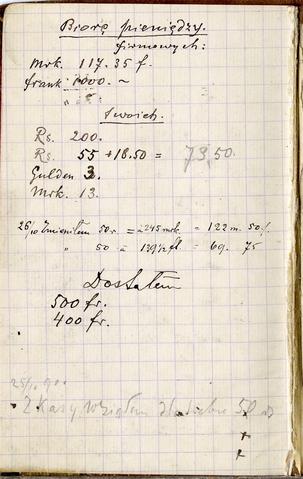 Biorę pieniędzy.
firmowych:
Mrk. 117.35 f.
frank: 1000. ~
" 5.
swoich.
Rs. 200.
Rs. 55 + 18.50 = 73.50.
Gulden 3.
Mrk. 13.
26/10 Zmieniłem 50 r. = 245 mrk. = 122 m. 50 f.
" 50 = 139½ fl = 69. 75
Dostałem
500 fr.
400 fr.
25/10 90
Z Kasy wziąłem dla siebie 50